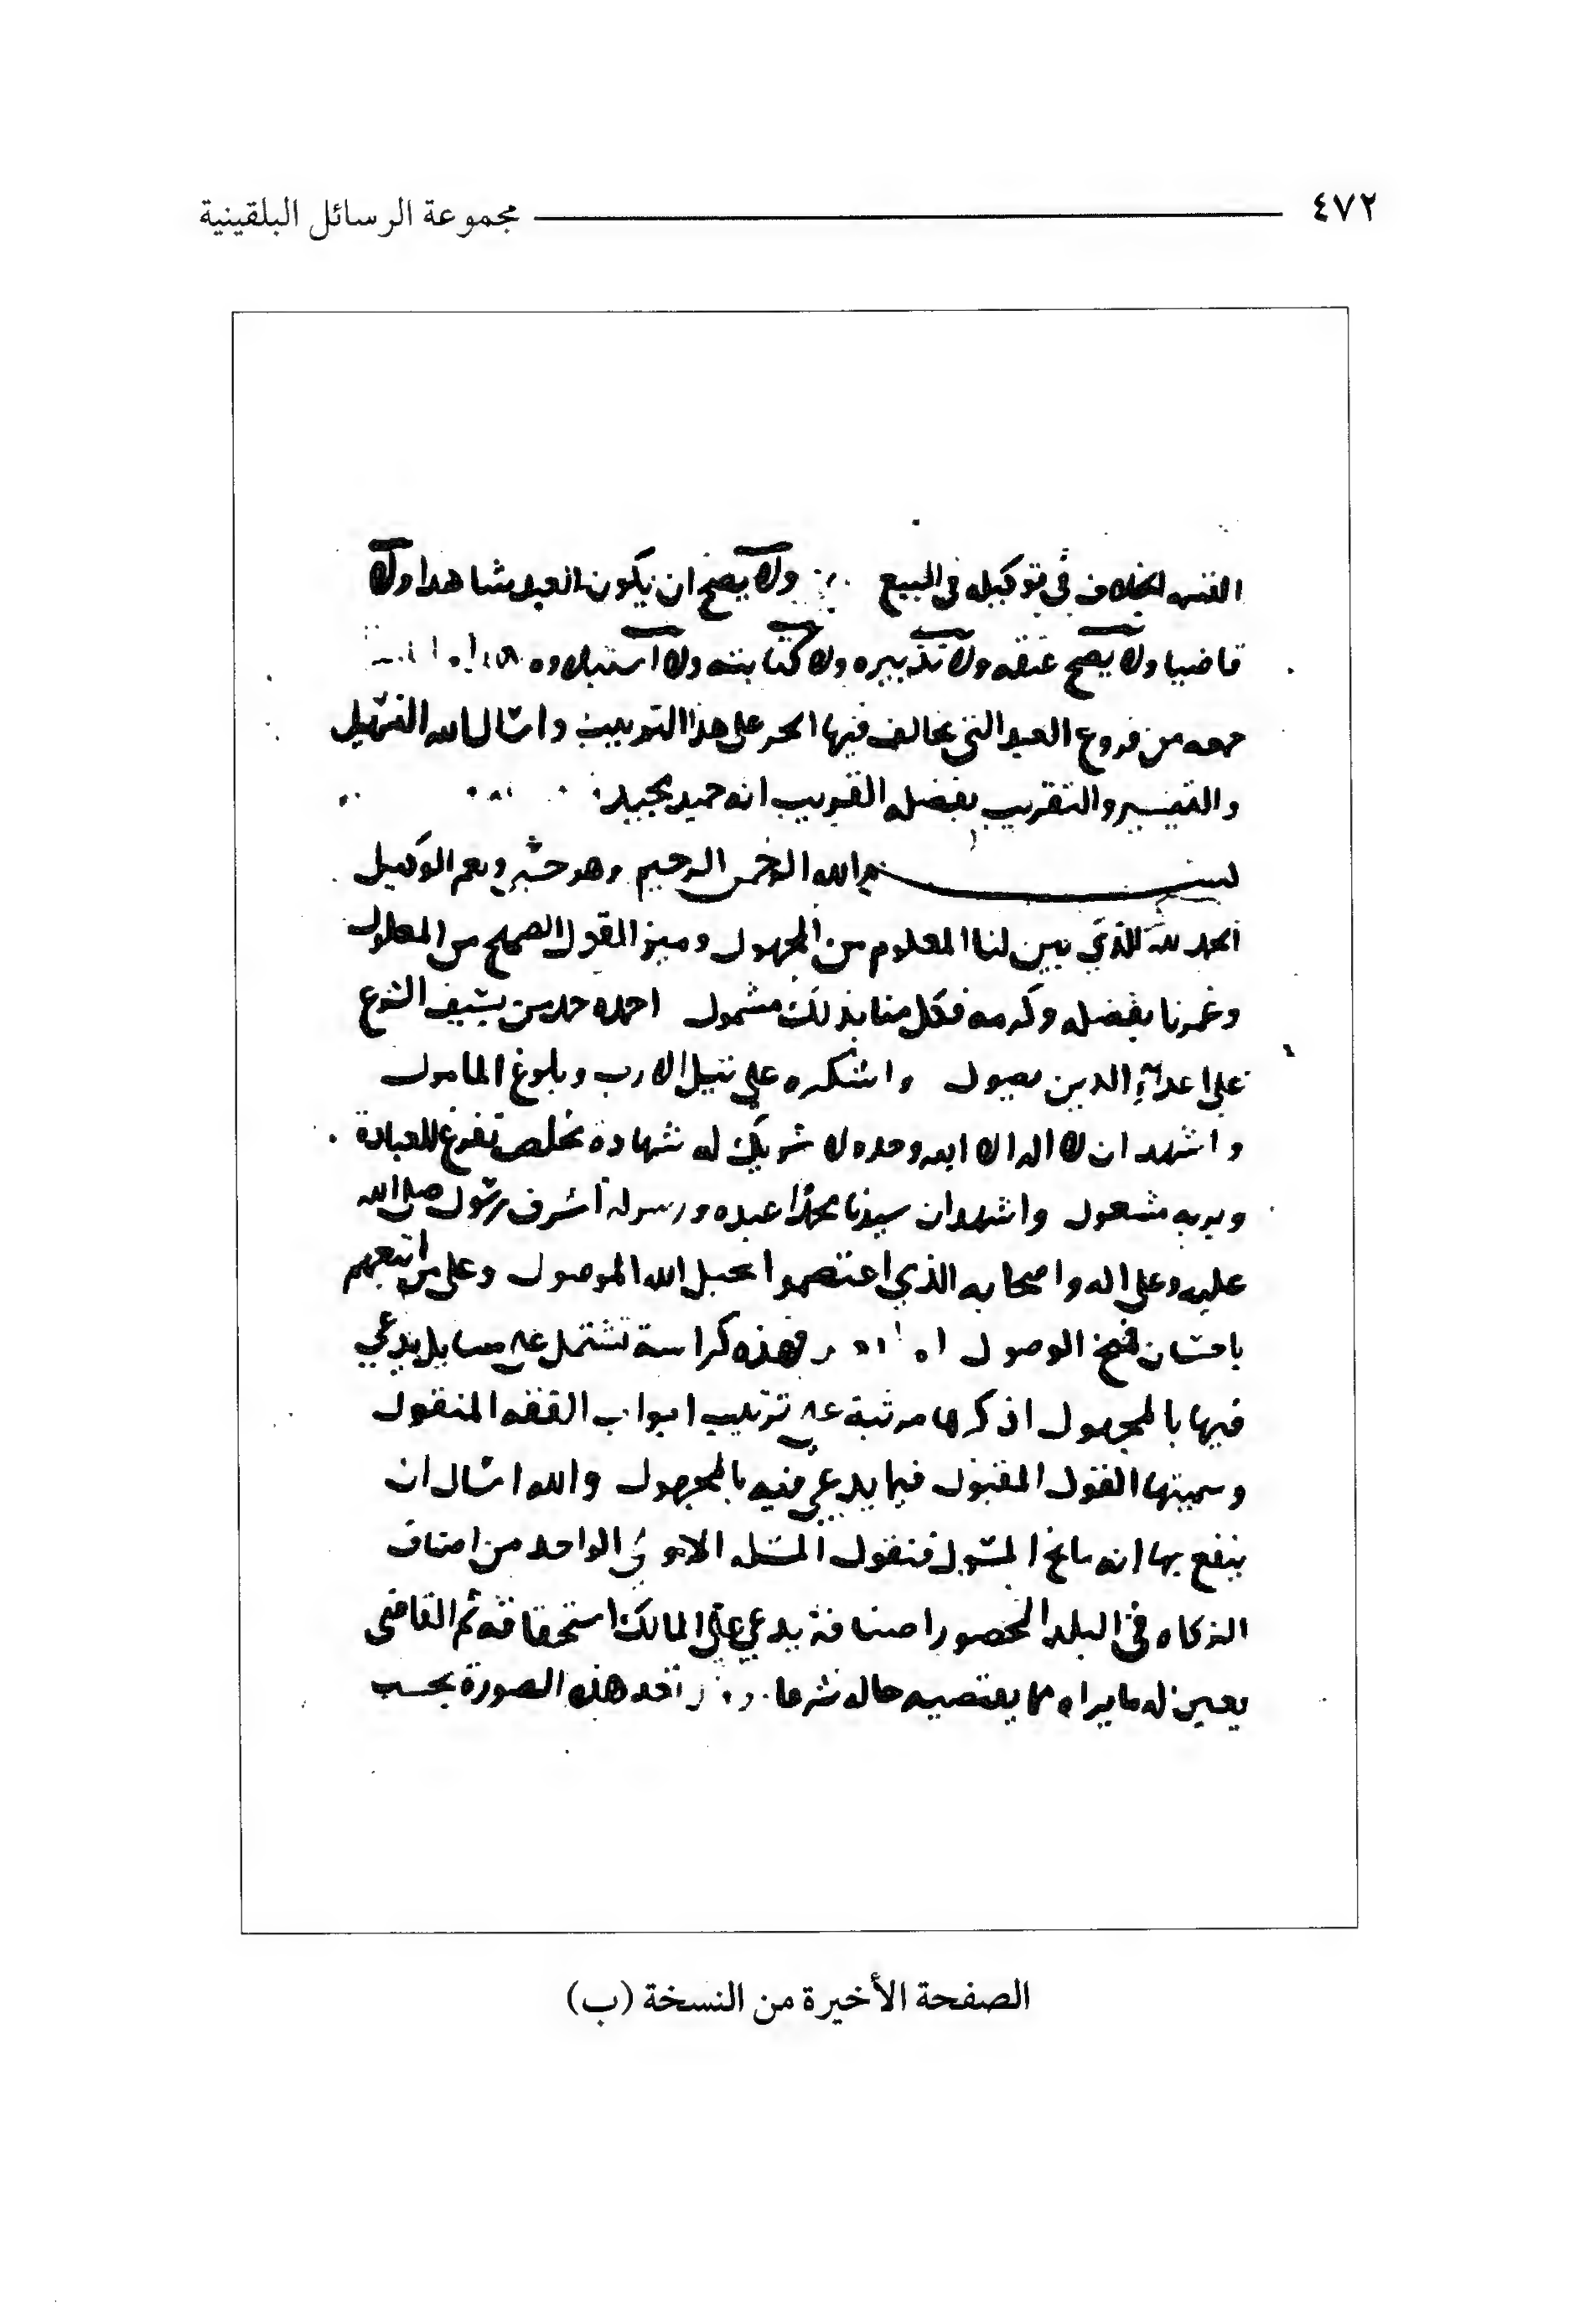 ٤٧٢ مجموعة الرسائل البلقينية
الخلاف في توكيله في البيع ولا يصح ان يكون العبد شاهدا ولا
قاضيا ولا يصح عتقه ولا تدبيره ولا كتابته ولا استيلاده
جمعه من فروع العبد التي يخالف فيها الحر على هذا التبويب واسال الله التسهيل
والتيسير والتقريب بفضله القريب انه حميد مجيد
بسم الله الرحمن الرحيم وهو حسبي ونعم الوكيل
الحمد لله الذي بين لنا المعلوم من المجهول وميز القول الصحيح من المعلول
وغمرنا بفضله وكرمه فكل منا بذلك مشمول احمده حمد من بسيف الشرع
على اعداء الدين يصول واشكره على نيل الارب وبلوغ المامول
واشهد ان لا اله الا الله وحده لا شريك له شهادة مخلص تفرغ للعبادة
وبربه مشغول واشهد ان سيدنا محمدا عبده ورسوله اشرف رسول صلى الله
عليه وعلى اله واصحابه الذي اعتصموا بحبل الله الموصول وعلى من اتبعهم
باحسان فنح الوصول فهذه كراسة تشتمل على مسايل يدعي
فيها بالمجهول اذكرها مرتبة على ترتيب ابواب الفقه المنقول
وسميتها القول المقبول فيما يدعي فيه بالمجهول والله اسال ان
ينفع بها انه مانح السول فنقول المسئله الاولى الواحد من اصناف
الزكاه في البلد المحصور اصنافه يدعي على المالك استحقاقه ثم القاضي
يعين له ما يراه مما يقتضيه حاله شرعا هذه الصورة بحسب
الصفحة الأخيرة من النسخة (ب)